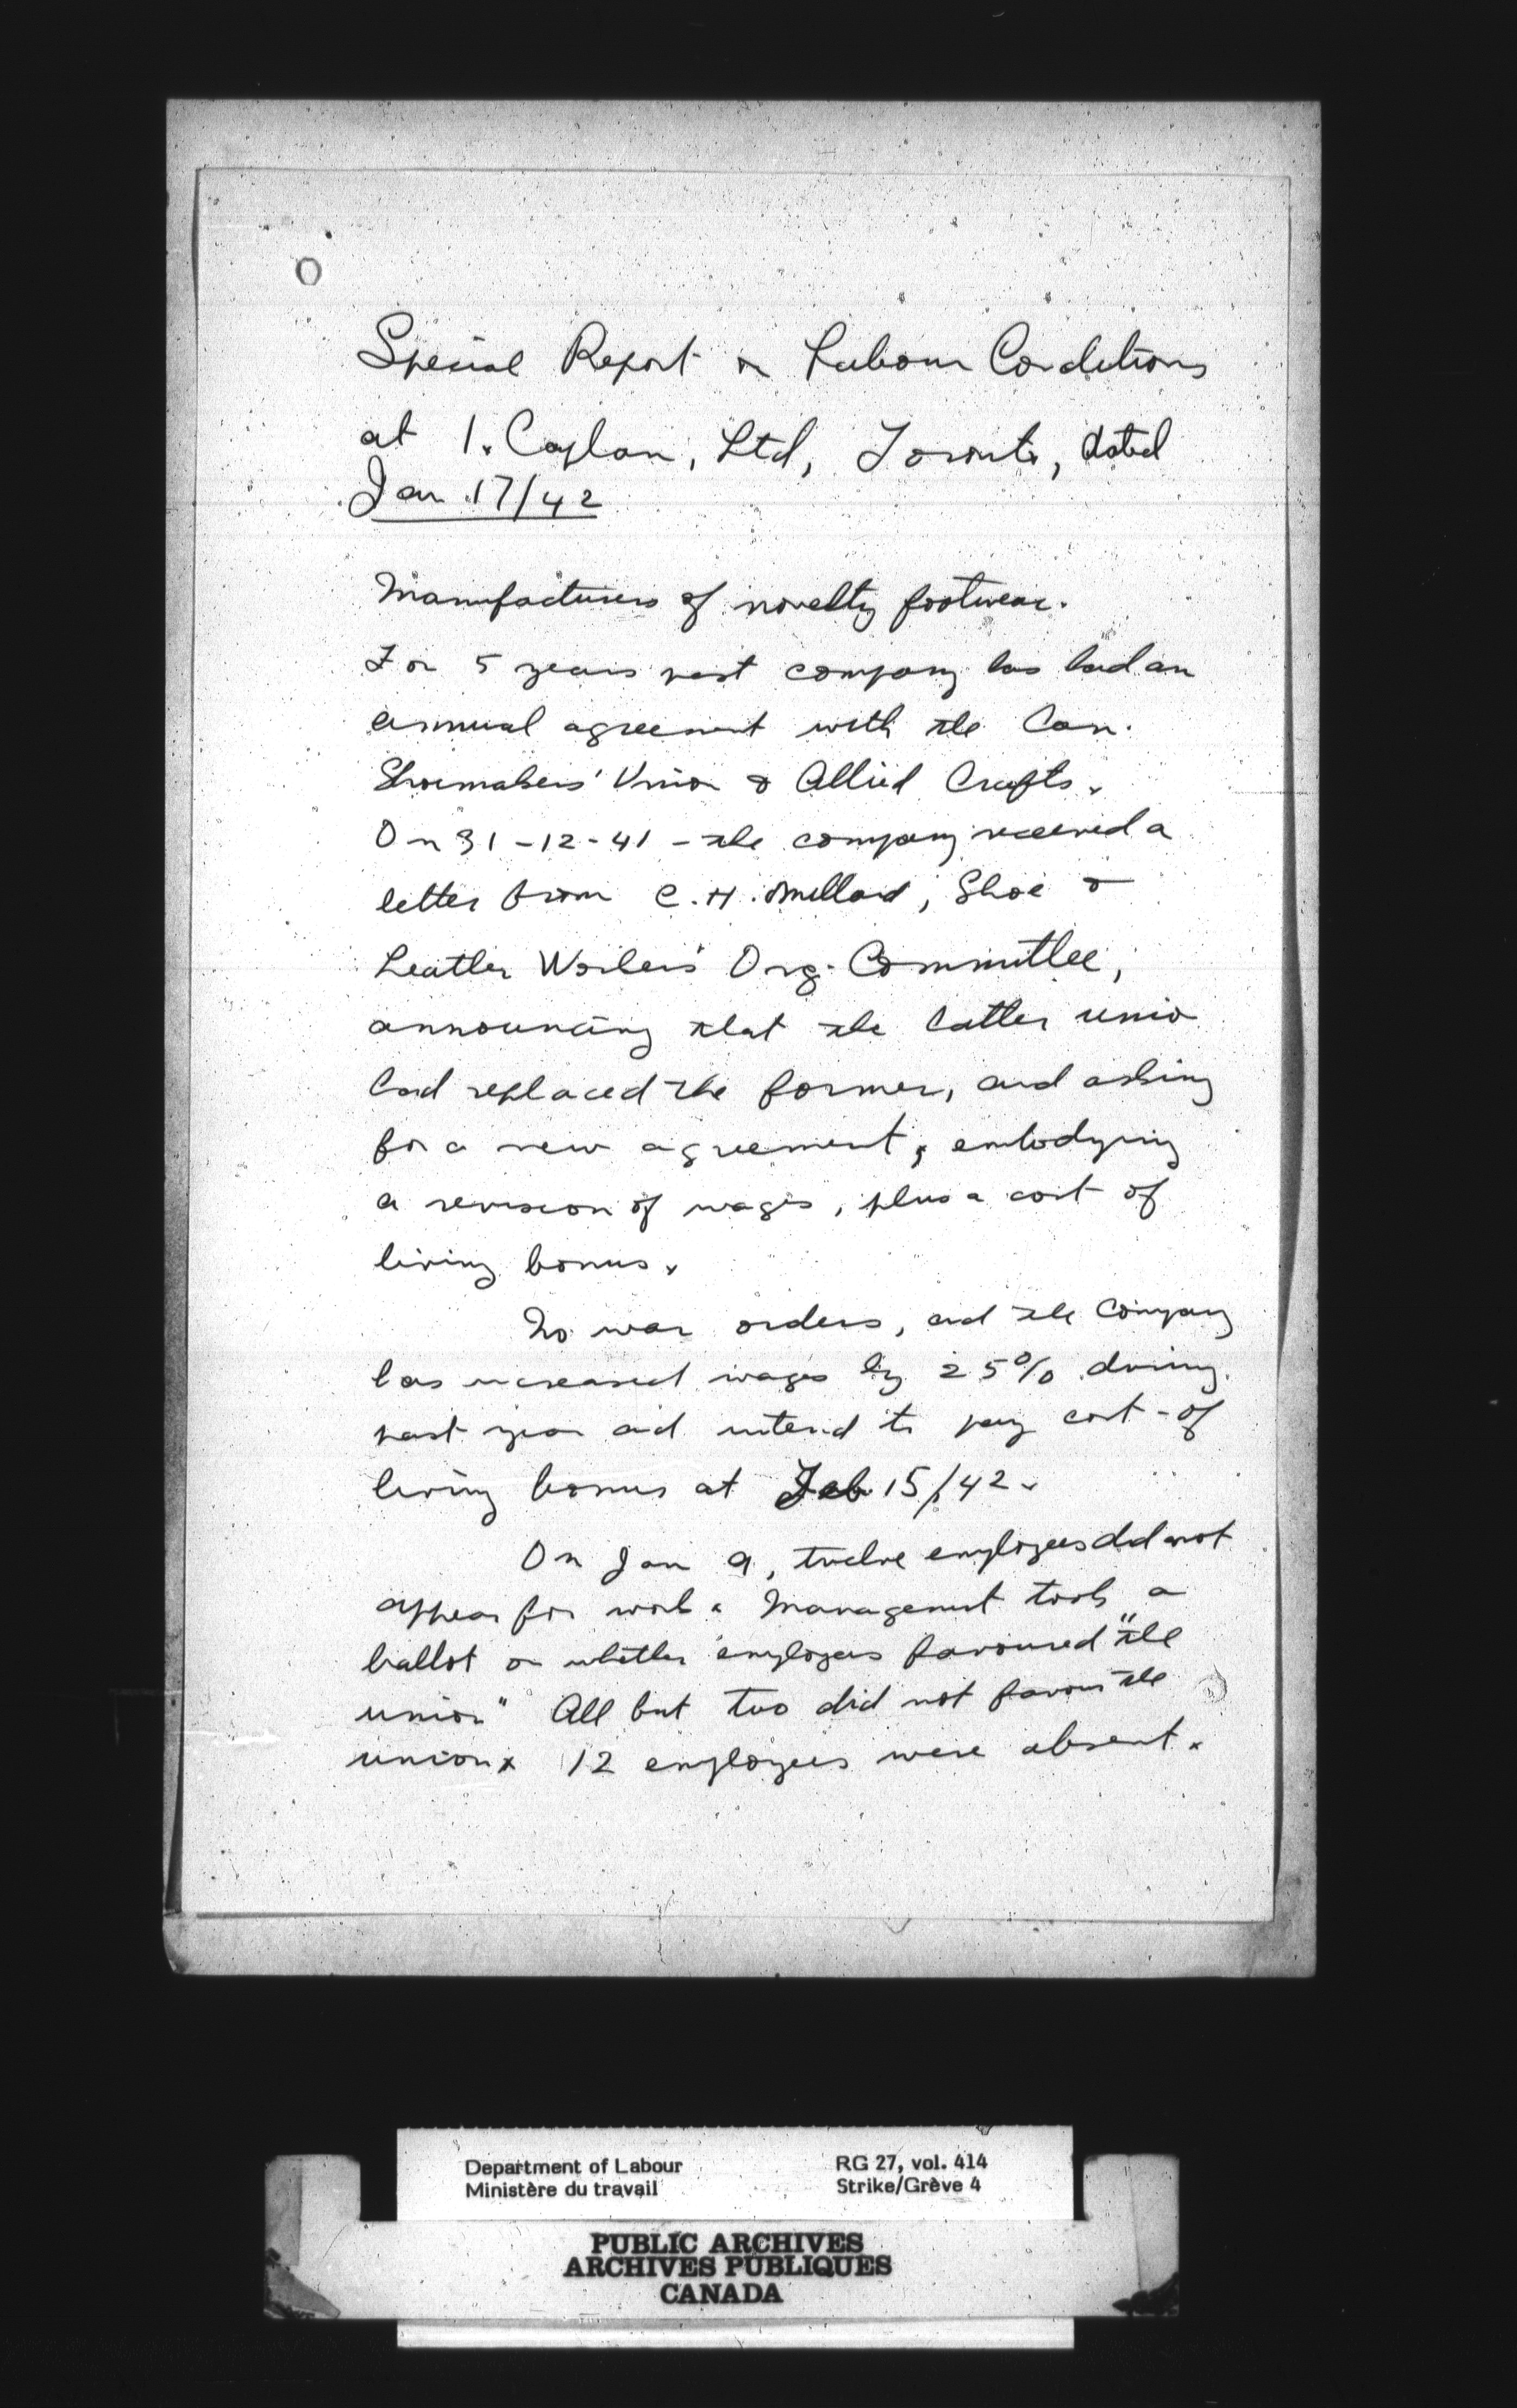 Special Report on Labour Conditions
at I. Caplan, Ltd, Toronto, dated
Jan 17/42
Manufacturers of novelty footwear.
For 5 years past company has had an
annual agreement with the Can.
Shoemakers' Union & Allied Crafts.
On 31-12-41 - the company received a
letter from C.H. Millard, Shoe &
Leather Workers' Org. Committee,
announcing that the latter union
had replaced the former, and asking
for a new agreement, embodying
a revision of wages, plus a cost of
living bonus.
No war orders, and the Company
has increased wages by 25% during
past year and intend to pay cost-of
living bonus at Feb 15/42.
On Jan 9, twelve employees did not
appear for work. Management took a
ballot on whether employees favoured "the
union" All but two did not favour the
union. 12 employees were absent.
Department of Labour
Ministère du travail
RG 27, vol. 414
Strike/Grève 4
PUBLIC ARCHIVES
ARCHIVES PUBLIQUES
CANADA